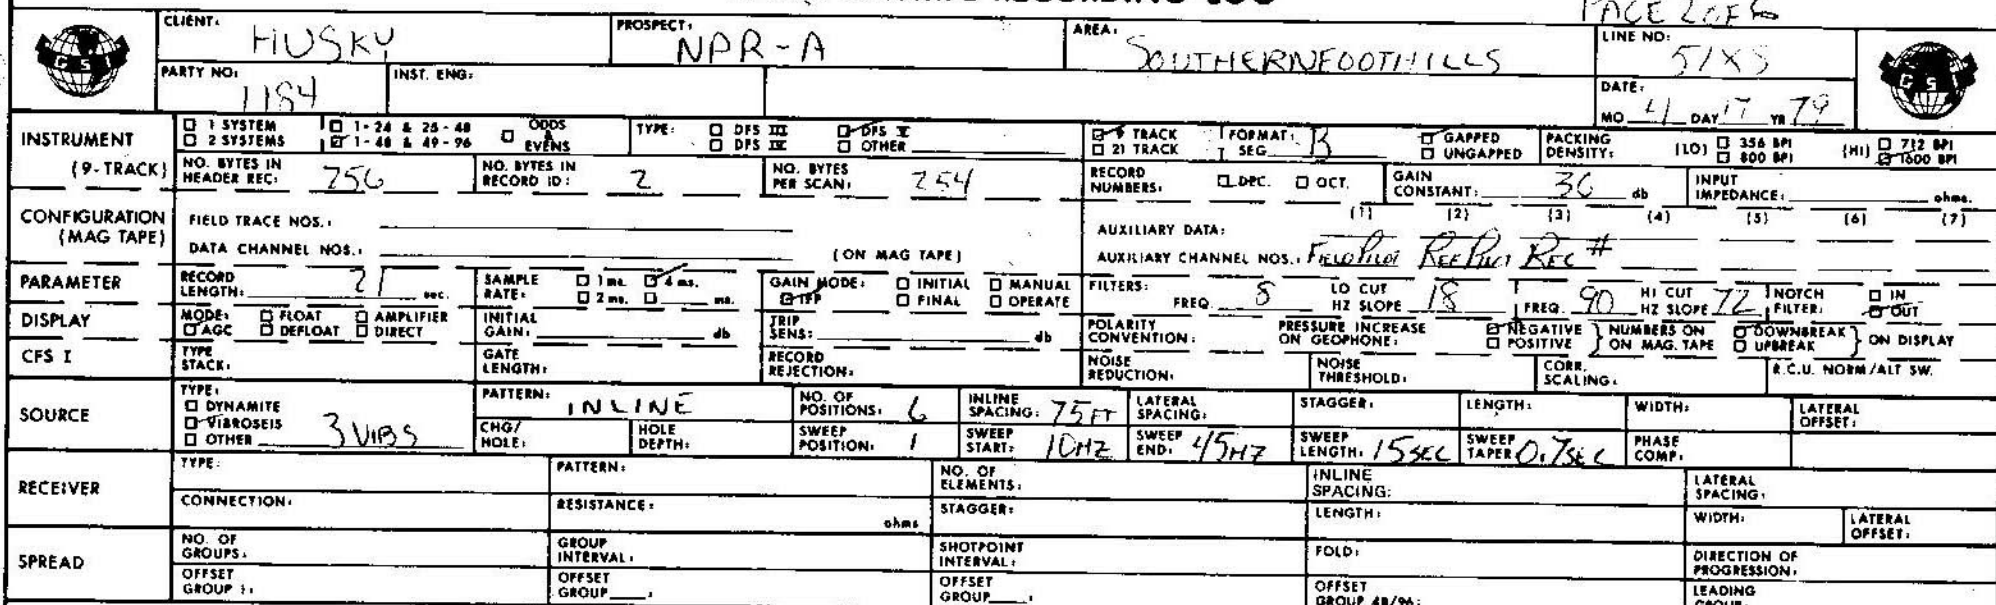 RECORDING LOG
PAGE 2 OF 6
CLIENT: HUSKY PROSPECT: NPR-A AREA: SOUTHERN FOOTHILLS LINE NO: 51X-
GSI GSI
PARTY NO: 1184 INST. ENG: DATE: MO 4 DAY 17 YR 79
INSTRUMENT (9-TRACK)
☐ 1 SYSTEM ☐ 1-24 & 25-48 ☐ ODDS & EVENS TYPE: ☐ DFS III ☑ DFS V ☑ 9 TRACK FORMAT: B ☑ GAPPED PACKING DENSITY: (LO) ☐ 356 BPI (HI) ☐ 712 BPI
☐ 2 SYSTEMS ☑ 1-48 & 49-96 ☐ DFS IV ☐ OTHER ☐ 21 TRACK SEG ☐ UNGAPPED ☐ 800 BPI ☑ 1600 BPI
NO. BYTES IN HEADER REC: 256 NO. BYTES IN RECORD ID: 2 NO. BYTES PER SCAN: 254 RECORD NUMBERS: ☑ DEC. ☐ OCT. GAIN CONSTANT: 36 db INPUT IMPEDANCE: ohms.
CONFIGURATION (MAG TAPE)
FIELD TRACE NOS.: AUXILIARY DATA: (1) (2) (3) (4) (5) (6) (7)
DATA CHANNEL NOS.: (ON MAG TAPE) AUXILIARY CHANNEL NOS.: FIELD PILOT REF PILOT REC #
PARAMETER RECORD LENGTH: 21 sec. SAMPLE RATE: ☐ 1 ms. ☑ 4 ms. ☐ 2 ms. ☐ ms. GAIN MODE: ☐ INITIAL ☐ MANUAL ☑ IFP ☐ FINAL ☐ OPERATE FILTERS: FREQ. 8 LO CUT HZ SLOPE 18 FREQ. 90 HI CUT HZ SLOPE 72 NOTCH FILTER: ☐ IN ☑ OUT
DISPLAY MODE: ☐ FLOAT ☐ AMPLIFIER ☐ AGC ☐ DEFLOAT ☐ DIRECT INITIAL GAIN: db TRIP SENS: db POLARITY CONVENTION: PRESSURE INCREASE ON GEOPHONE: ☑ NEGATIVE ☐ POSITIVE } NUMBERS ON MAG. TAPE ☑ DOWNBREAK ☐ UPBREAK } ON DISPLAY
CFS I TYPE STACK: GATE LENGTH: RECORD REJECTION: NOISE REDUCTION: NOISE THRESHOLD: CORR. SCALING: R.C.U. NORM/ALT SW.
SOURCE TYPE: ☐ DYNAMITE ☑ VIBROSEIS ☐ OTHER 3 VIBS PATTERN: INLINE NO. OF POSITIONS: 6 INLINE SPACING: 75 FT LATERAL SPACING: STAGGER: LENGTH: WIDTH: LATERAL OFFSET:
CHG/HOLE: HOLE DEPTH: SWEEP POSITION: 1 SWEEP START: 10HZ SWEEP END: 45HZ SWEEP LENGTH: 15 SEC SWEEP TAPER 0.7 SEC PHASE COMP:
RECEIVER TYPE: PATTERN: NO. OF ELEMENTS: INLINE SPACING: LATERAL SPACING:
CONNECTION: RESISTANCE: ohms STAGGER: LENGTH: WIDTH: LATERAL OFFSET:
SPREAD NO. OF GROUPS: GROUP INTERVAL: SHOTPOINT INTERVAL: FOLD: DIRECTION OF PROGRESSION:
OFFSET GROUP 1: OFFSET GROUP : OFFSET GROUP : OFFSET GROUP 48/96: LEADING GROUP: